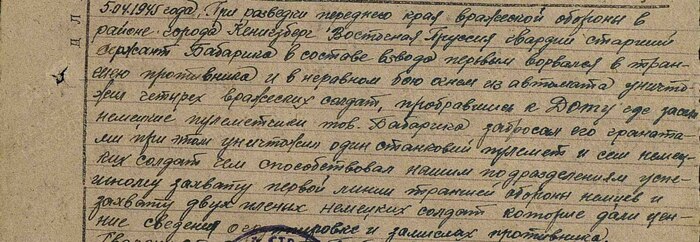 5.04.1945 года, При разведки переднего края вражеской обороны в
районе города Кенигсберг Восточная Пруссия гвардии старший
сержант Бабарика в составе взвода первым ворвался в тран-
шею противника и в неравном бою огнем из автомата уничто-
жил четырех вражеских солдат, пробравшись к Доту где засели
немецкие пулеметчики тов. Бабарика забросал его граната-
ми при этом уничтожил один станковый пулемет и семь немец-
ких солдат чем способствовал нашим подразделениям успе-
шному захвату первой линии траншей обороны немцев и
захвату двух пленых немецких солдат которые дали цен-
ные сведения о группировке и замыслах противника.
Гвардии